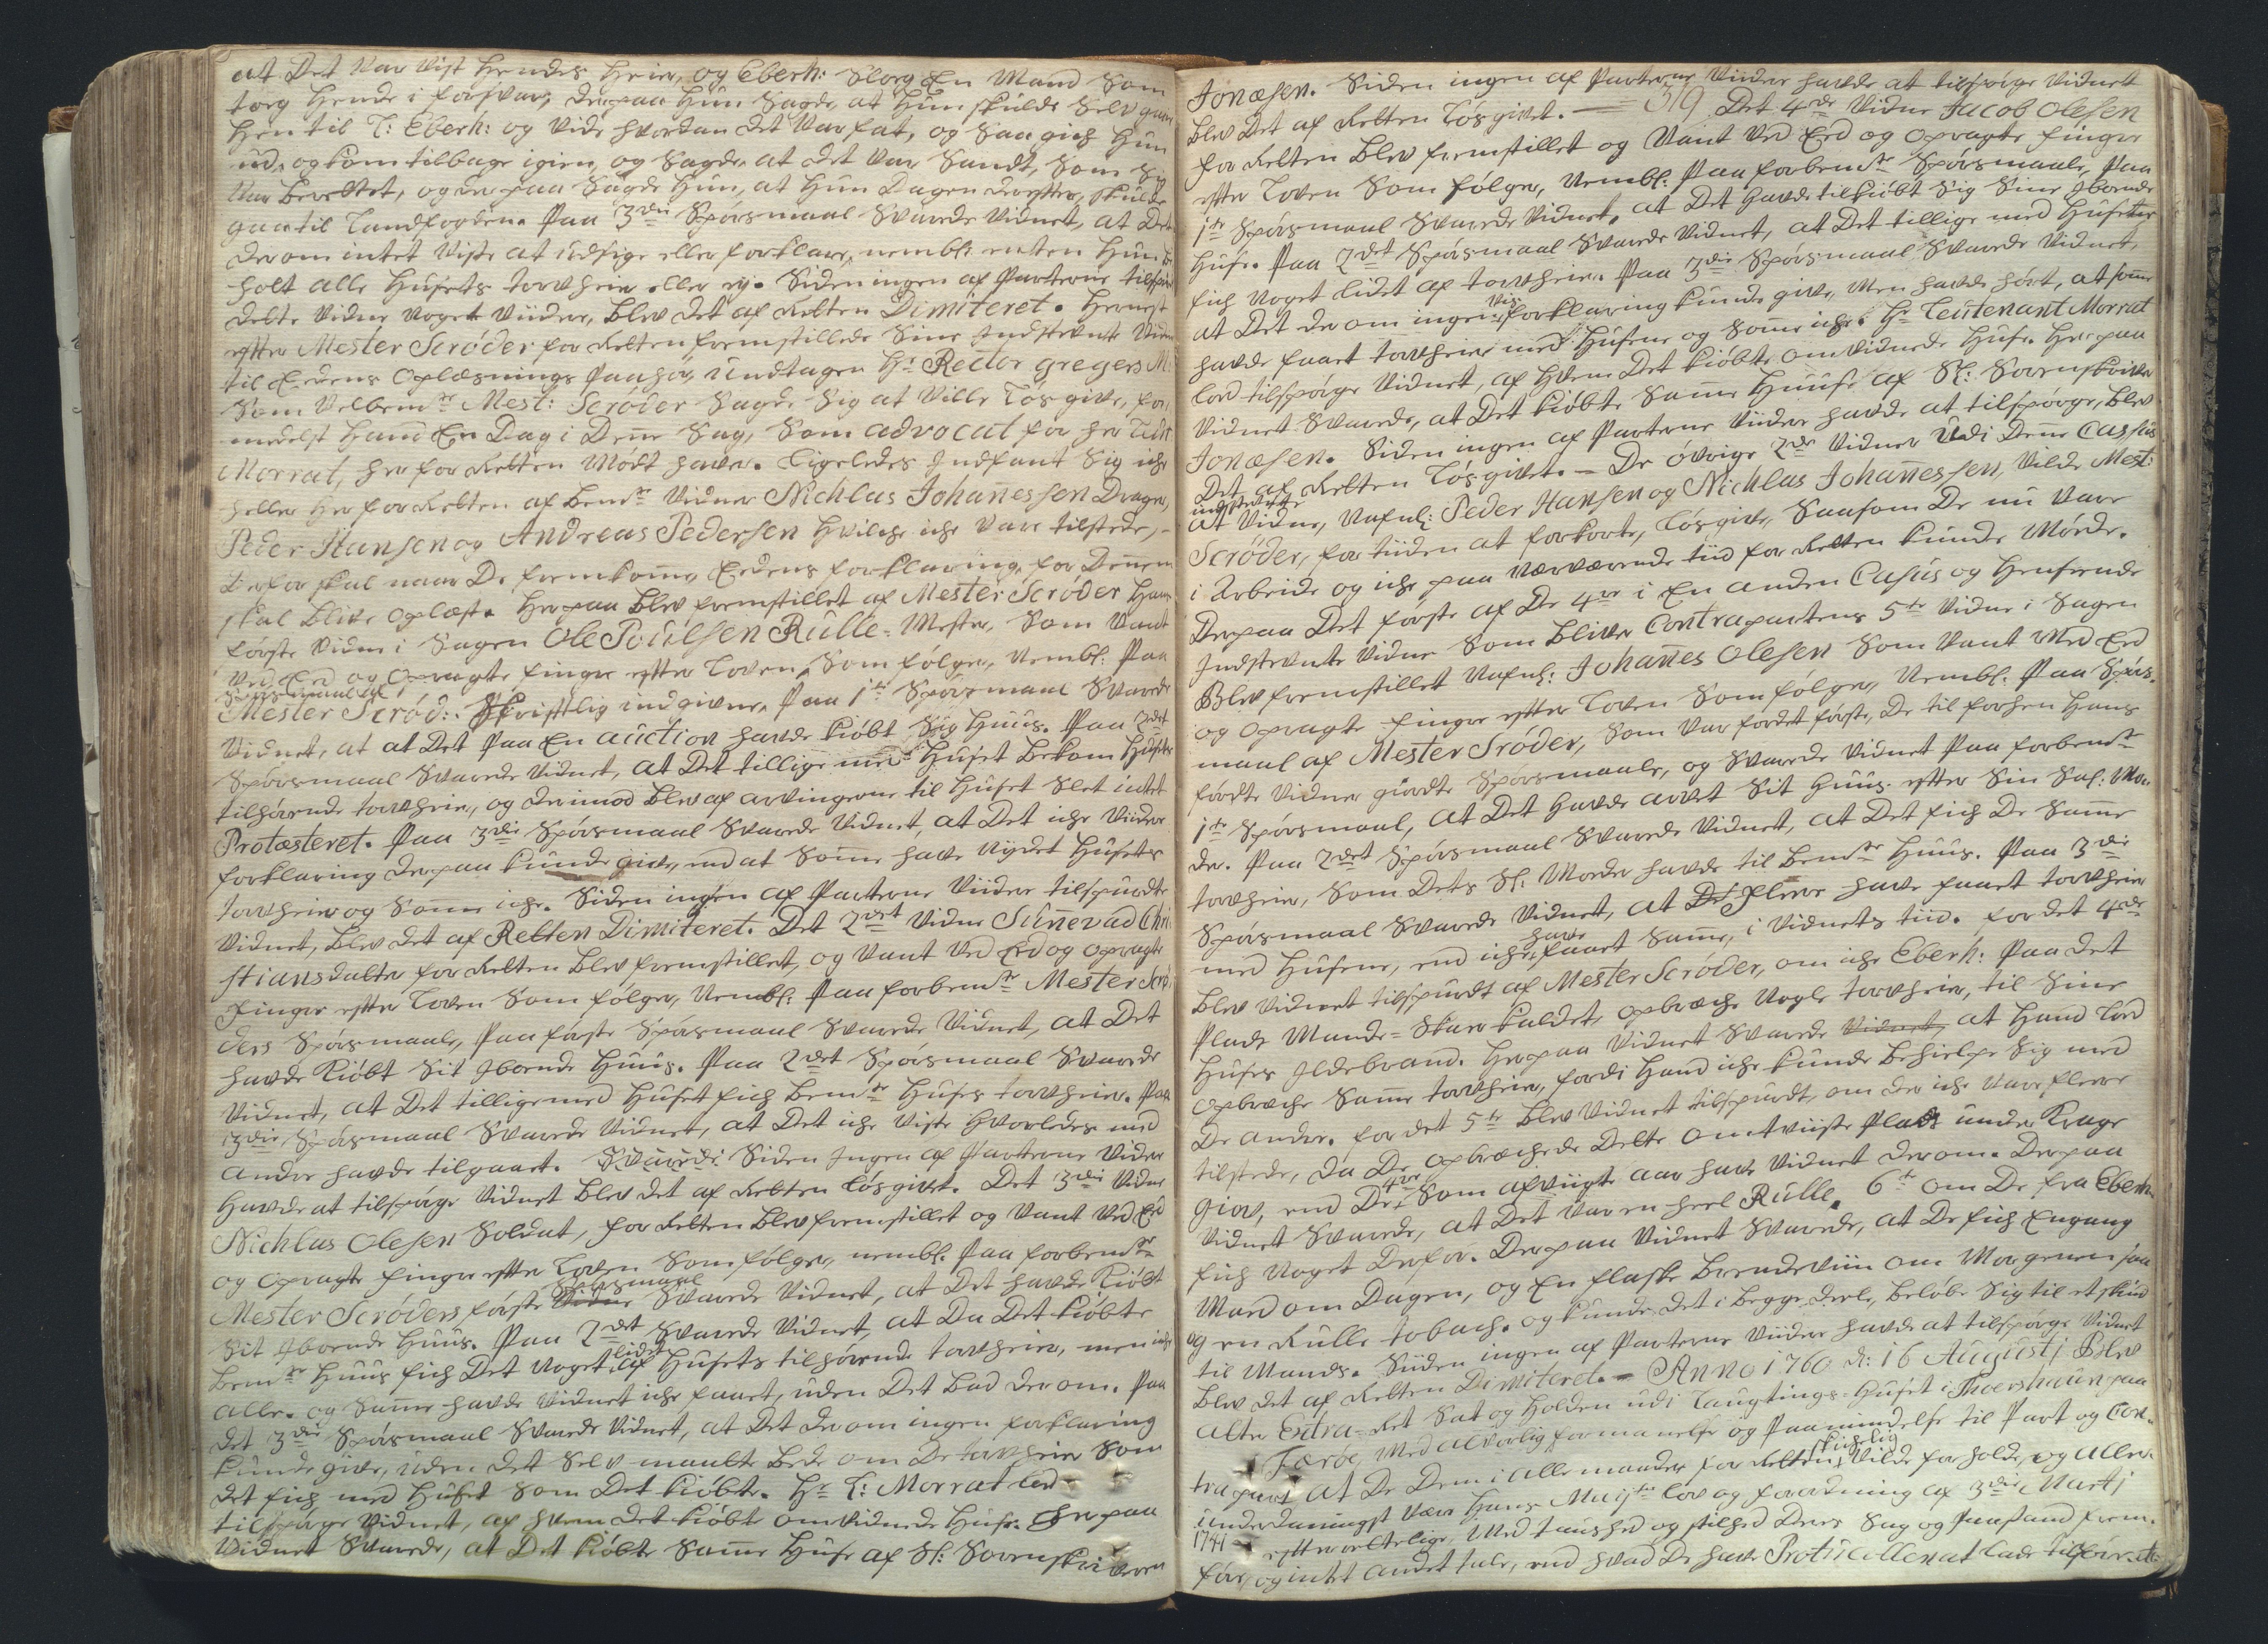 at Det var vist hendes heie, og Eberh: Slorg En Mand Som
torg hende i forsvar, derpaa hun Sagde, at hun skulde Selv gaae
hen til L: Eberh: og vide hvordan det var fat, og Saa gich hun
ud, og kom tilbage igien, og Sagde, at det var Sandt, Som Sig
var berettet, og derpaa Sagde hun, at hun Dagen derefter, skulde
gaa til Landfogden. Paa 3die Spörsmaal Svarede Vidnet, at Det
derom intet viste at udsige eller forklare, nembl: enten hun be
holt alle Husets torvheie eller ey. Siden ingen af Parterne tilspur
dette Vidne noget viidere, blev det af Retten Dimiteret. Hernest
efter Mester Scröder for Retten fremstillede Sine Indstevnte Vidner
til Eedens Oplæsnings Paahör, Undtagen Hr Rector Gregers M:
Som Velbemte Mest: Scröder Sagde Sig at ville Lösgive, for
medelst hand En Dag i Denne Sag, Som advocat for her Leut
Morrat, her for Retten mödt haver. Ligeledes Indfant Sig iche
heller her for Retten af bemte Vidner Nichlas Johannessen Drager,
Peder Hansen og Andreas Pedersen hvilche iche vare tilstede,
derfor skal naar De fremkomme, Eedens forklaring for Dennem
skal blive oplæst. Herpaa blev fremstillet af Mester Scröder hans
förste Vidne i Sagen Ole Poulsen Rulle-Mester, Som vant
ved Eed og opragte finger efter Loven, Som fölger, Nembl: Paa
Spörsmaalene
Mester Scröd: Skriftlig indgivne. Paa 1te Spörsmaal Svarede
Vidnet, at at Det paa En auction havde kiöbt Sig huus. Paa 2det
Spörsmaal Svarede Vidnet, at Det tillige med Huset bekom Husets
tilhörende torvheie, og derimod blev af arvingerne til Huset Slet intet
Protæsteret. Paa 3die Spörsmaal Svarede Vidnet, at Det iche viidere
forklaring derpaa kunde give, end at Somme have nydet Husets
torvheie og Somme iche. Siden ingen af Parterne viidere tilspurdte
Vidnet, blev det af Retten Dimiteret. Det 2det Vidne Sunnevad Chri
stiansdatter for Retten blev fremstillet, og vant ved Eed og opragte
Finger efter Loven Som fölger, Nembl: Paa forbemte Mester Scrö
ders Spörsmaale, Paa förste Spörsmaal Svarede Vidnet, at Det
havde kiöbt Sit Iboende huus. Paa 2det Spörsmaal Svarede
Vidnet, at Det tilligemed Huset fich bemte Huses torvheie. Paa
3die Spörsmaal Svarede Vidnet, at Det iche viste hvorledes med
andre havde tilgaaet. Svarede Siden Ingen af Parterne viidere
havde at tilspörge Vidnet blev det af Retten lösgivet. Det 3die Vidne
Nichlas Olesen Soldat, for Retten blev fremstillet og vant ved Eed
og opragte finger efter Loven Som fölger, nembl: Paa forbemte
Spörsmaal
Mester Scröders förste Vidne Svarede Vidnet, at Det havde kiöbt
Sit Iboende huus. Paa 2det Svarede Vidnet, at Da Det kiöbte
lidet
bemte huus fich Det noget af Husets tilhörende torvheie, men iche
alle. og Samme havde Vidnet iche faaet, uden Det bad derom. Paa
det 3die Spörsmaal Svarede Vidnet, at Det derom ingen forklaring
kunde give, uden det Selv maatte bede om De torvheie Som
det fich med Huset Som Det kiöbte. Hr L: Morrat lod
tilspörge Vidnet, af hvem det kiöbte omvidnede Huse. Herpaa
Vidnet Svarede, at Det kiöbte Samme Huse af Sl: Sorenskriveren
Jonæsen. Siden ingen af Parterne viidere havde at tilspörge Vidnet
blev Det af Retten Lösgivet. 319 Det 4de Vidne Jacob Olesen
for Retten blev fremstillet og vant ved Eed og opragte finger
efter Loven Som fölger, Nembl: Paa forbemte Spörsmaale, Paa
1te Spörsmaal Svarede Vidnet, at Det havde tilkiöbt Sig Sine Iboende
Huse. Paa 2det Spörsmaal Svarede Vidnet, at Det tillige med Husene
fich noget lidet af torvheie. Paa 3die Spörsmaal Svarede Vidnet,
vis
at Det derom ingen forklaring kunde give, Men havde hört, at somme
havde faaet torvheie med Husene og Somme iche. Hr Leutenant Morrat
lod tilspörge Vidnet, af hvem Det kiöbte omvidnede Huse. Herpaa
Vidnet Svarede, at Det kiöbte Samme Huuse af Sl: Sorenskriver
Jonæsen. Siden ingen af Parterne viidere havde at tilspörge, blev
Det af Retten Lösgivet. — De övrige 2de Vidner Udi Denne Cassus
indstevnte
at Vidne, Nafnl: Peder Hansen og Nichlas Johannessen, vilde Mest:
Scröder, for tiiden at forkorte, Lösgive, Saasom De nu vare
i Arbeide og iche paa nærværende tiid for Retten kunde Möde.
Derpaa Det förste af De 4re i En anden Casus og henseende
Indstevnte Vidne Som bliver Contrapartens 5te Vidne i Sagen
blev fremstillet Nafnl: Johannes Olesen Som vant med Eed
og opragte finger efter Loven Som fölger, Nembl: Paa Spörs-
maal af Mester Sröder, Som var fordet förste, De til forhen hans
förte Vidner giordte Spörsmaale, og Svarede Vidnet Paa forbemte
1te Spörsmaal, at Det havde arvet Sit huus efter Sin Sal: Mo-
der. Paa 2det Spörsmaal Svarede Vidnet, at Det fich De Samme
torvheie, Som Dets Sl: Moder havde til bemte huus. Paa 3die
Spörsmaal Svarede Vidnet, at Det fleere have faaet torvheie
have
med Husene, end iche faaet Samme, i Vidnets tiid. for det 4de
blev Vidnet tilspurdt af Mester Scröder, om iche Eberh: Paa det
Plads Mande-Skar kaldet, opbræche Nogle torvheie, til Sine
Huses Ildebrand. Herpaa Vidnet Svarede Vidnet, at hand lod
opbræche Samme torvheie, fordi hand iche kunde behielpe Sig med
De andre. for det 5te blev Vidnet tilspurdt, om der iche vare fleere
tilstede, da De opbrechede dette omtviiste Plads under Krage
4re
Giov, end De Som afvigte aar have Vidnet derom. Derpaa
Vidnet Svarede, at Det var en heel Rulle. 6te om De fra Eberh
fich noget Derfor. Derpaa Vidnet Svarede, at De fich Engang
Mad om Dagen, og En flaske brendeviin om Morgenen saa
og en Rulle tobach. og kunde det i begge deele, belöbe Sig til et skind
til Mands. Siden ingen af Parterne viidere havde at tilspörge Vidnet
blev det af Retten Dimiteret. — Anno 1760 d: 16 Augustj Blev
atter Extra-Ret Sat og holden udi Laugtings-Huset i Thoershaun paa
Færöe, med alvorlig formanelse og Paamindelse til Part og Con-
skichelig
trapart at De Dem i alle maader for Retten vilde forholde, og aller-
underdaanigst være hans Mayts lov og forordning af 3die Martj
1741 efterrettelige, med taushed og stilhed Deres Sag og Paastand frem-
före, og intet andet tale, end hvad De have Protucollen at lade tilföre etc: